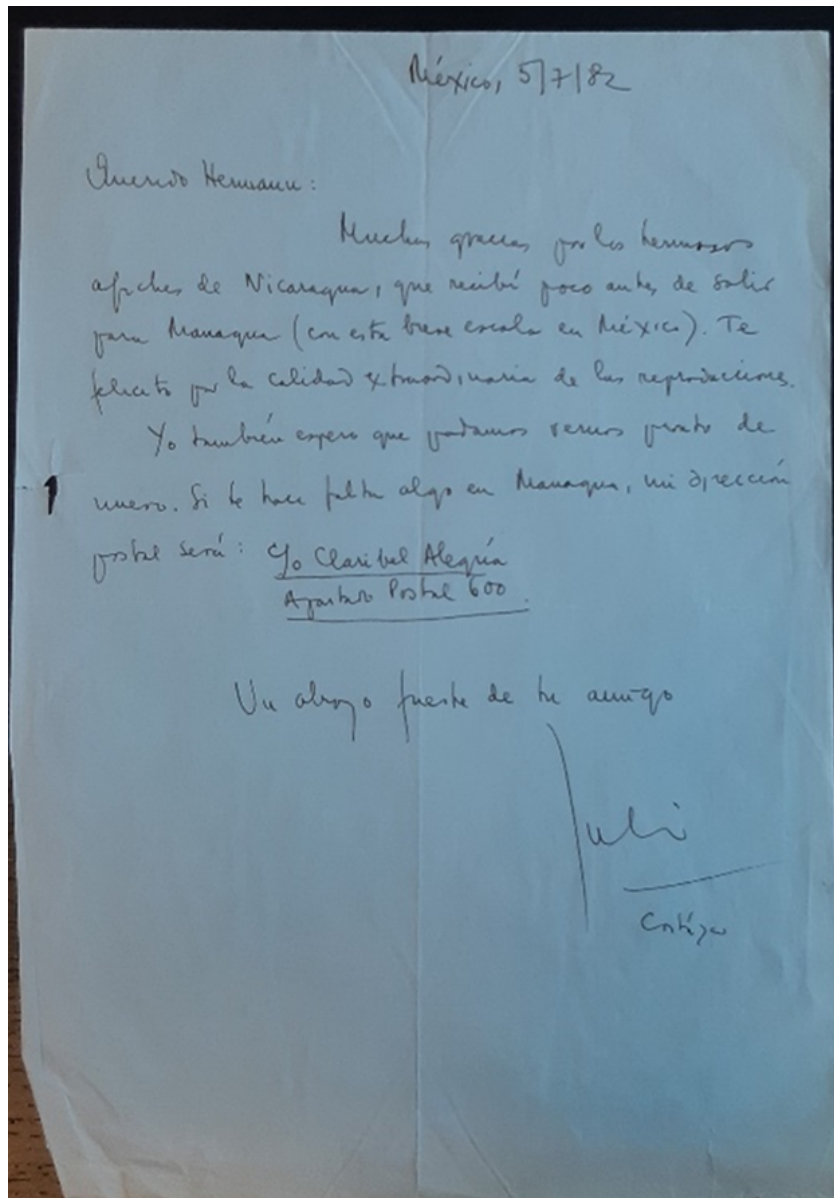 México, 5/7/82
Querido Hermann:
Muchas gracias por los hermosos
afiches de Nicaragua, que recibí poco antes de salir
para Managua (con esta breve escala en México). Te
felicito por la calidad extraordinaria de las reproducciones.
Yo también espero que podamos vernos pronto de
nuevo. Si te hace falta algo en Managua, mi dirección
postal será: c/o Claribel Alegría
Apartado Postal 600.
Un abrazo fuerte de tu amigo
Julio
Cortázar